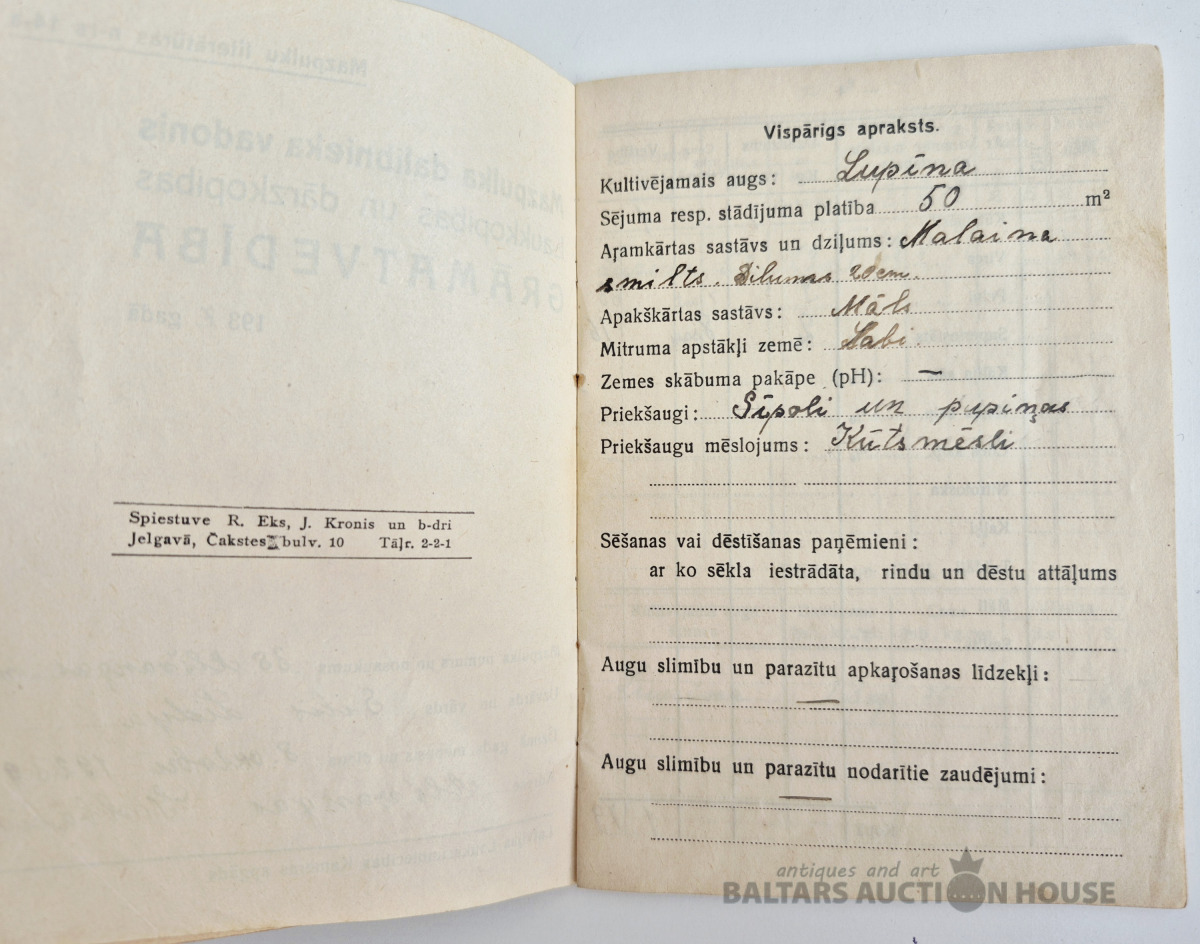 Spiestuve R. Eks, J. Kronis un b-dri
Jelgavā, Čakstes bulv. 10 Tāļr. 2-2-1
Vispārīgs apraksts.
Kultivējamais augs: Lupīna
Sējuma resp. stādījuma platība 50 m²
Aŗamkārtas sastāvs un dziļums: Malaina
smilts. Dilums 20cm.
Apakškārtas sastāvs: Māls
Mitruma apstākļi zemē: Labi.
Zemes skābuma pakāpe (pH): —
Priekšaugi: Sīpoli un pupiņas
Priekšaugu mēslojums: Kūtsmēsli
Sēšanas vai dēstīšanas paņēmieni:
ar ko sēkla iestrādāta, rindu un dēstu attāļums
Augu slimību un parazītu apkaŗošanas līdzekļi:
—
Augu slimību un parazītu nodarītie zaudējumi:
—
antiques and art
BALTARS AUCTION HOUSE